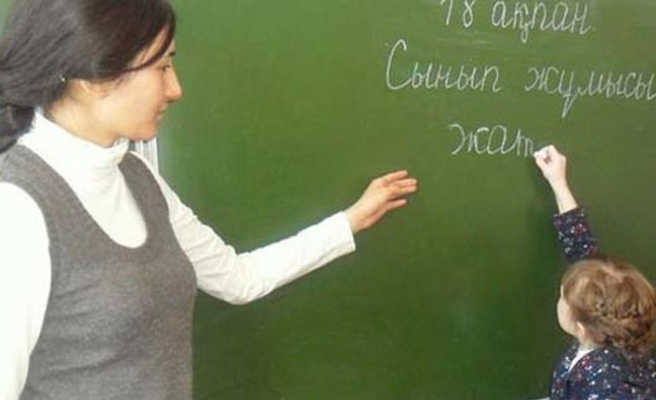 18 ақпан
Сынып жұмысы
жат